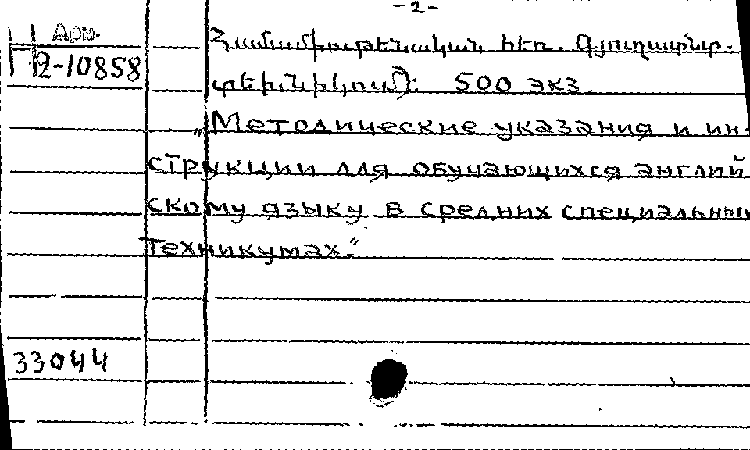 -2-
Арм.
Համամիութենական հեռ. Գյուղատնտ.
2-10858
տեխնիկում): 500 экз.
„Методические указания и ин-
струкции для обучающихся англий
скому языку в средних специальных
техникумах."
33044